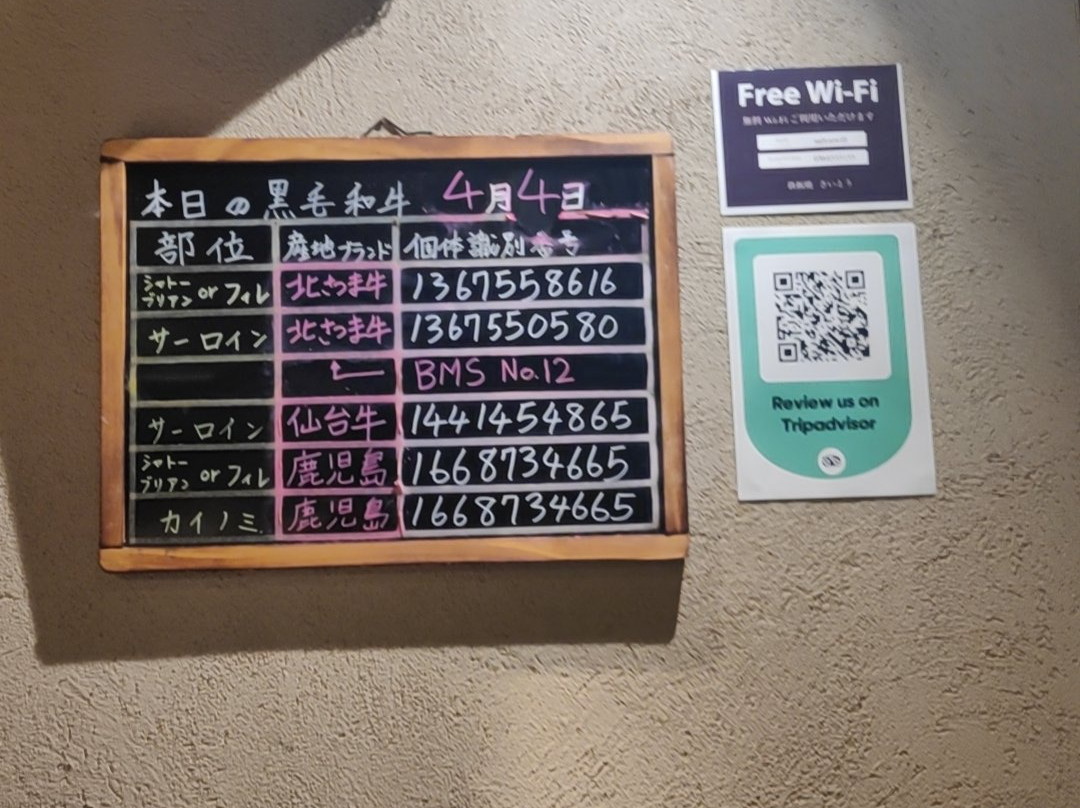 本日の黒毛和牛 4月4日
部位 産地ブランド 個体識別番号
シャトーブリアン or フィレ 北さつま牛 1367558616
サーロイン 北さつま牛 1367550580
BMS No.12
サーロイン 仙台牛 1441454865
シャトーブリアン or フィレ 鹿児島 1668734665
カイノミ 鹿児島 1668734665
Free Wi-Fi
無料 Wi-Fi ご利用いただけます
鉄板焼 さいとう
Review us on
Tripadvisor